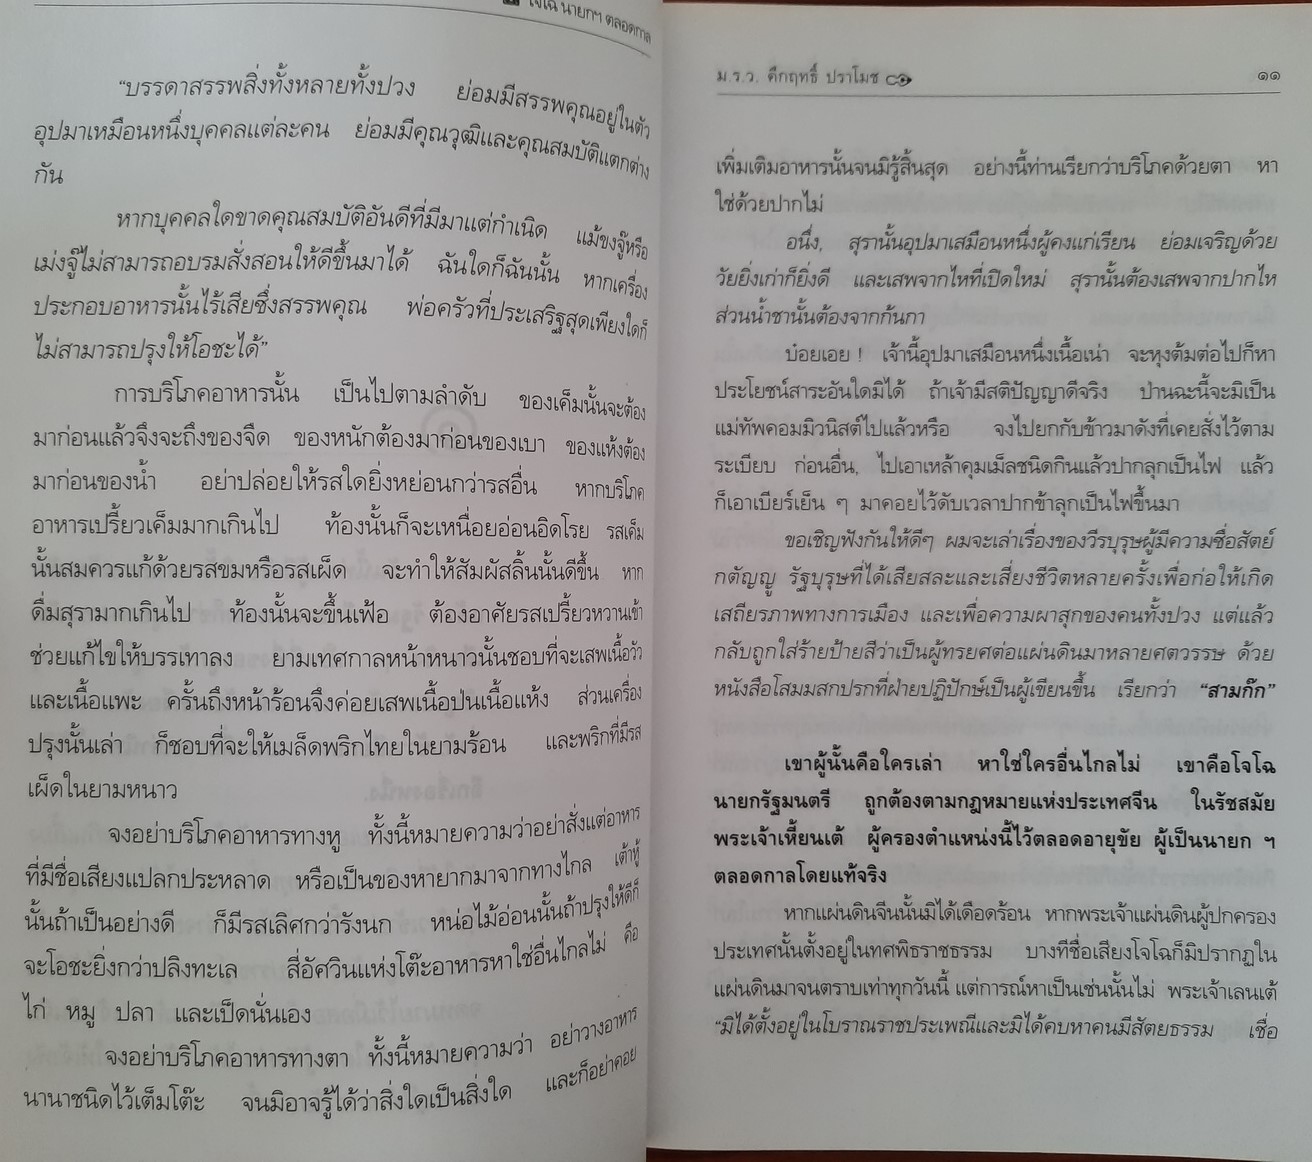 โจโฉ นายกฯ ตลอดกาล
“บรรดาสรรพสิ่งทั้งหลายทั้งปวง ย่อมมีสรรพคุณอยู่ในตัว
อุปมาเหมือนหนึ่งบุคคลแต่ละคน ย่อมมีคุณวุฒิและคุณสมบัติแตกต่าง
กัน
หากบุคคลใดขาดคุณสมบัติอันดีที่มีมาแต่กำเนิด แม้ขงจู๊หรือ
เม่งจู๊ไม่สามารถอบรมสั่งสอนให้ดีขึ้นมาได้ ฉันใดก็ฉันนั้น หากเครื่อง
ประกอบอาหารนั้นไร้เสียซึ่งสรรพคุณ พ่อครัวที่ประเสริฐสุดเพียงใดก็
ไม่สามารถปรุงให้โอชะได้”
การบริโภคอาหารนั้น เป็นไปตามลำดับ ของเค็มนั้นจะต้อง
มาก่อนแล้วจึงจะถึงของจืด ของหนักต้องมาก่อนของเบา ของแห้งต้อง
มาก่อนของน้ำ อย่าปล่อยให้รสใดยิ่งหย่อนกว่ารสอื่น หากบริโภค
อาหารเปรี้ยวเค็มมากเกินไป ท้องนั้นก็จะเหนื่อยอ่อนอิดโรย รสเค็ม
นั้นสมควรแก้ด้วยรสขมหรือรสเผ็ด จะทำให้สัมผัสลิ้นนั้นดีขึ้น หาก
ดื่มสุรามากเกินไป ท้องนั้นจะขึ้นเฟ้อ ต้องอาศัยรสเปรี้ยวหวานเข้า
ช่วยแก้ไขให้บรรเทาลง ยามเทศกาลหน้าหนาวนั้นชอบที่จะเสพเนื้อวัว
และเนื้อแพะ ครั้นถึงหน้าร้อนจึงค่อยเสพเนื้อป่นเนื้อแห้ง ส่วนเครื่อง
ปรุงนั้นเล่า ก็ชอบที่จะให้เมล็ดพริกไทยในยามร้อน และพริกที่มีรส
เผ็ดในยามหนาว
จงอย่าบริโภคอาหารทางหู ทั้งนี้หมายความว่าอย่าสั่งแต่อาหาร
ที่มีชื่อเสียงแปลกประหลาด หรือเป็นของหายากมาจากทางไกล เต้าหู้
นั้นถ้าเป็นอย่างดี ก็มีรสเลิศกว่ารังนก หน่อไม้อ่อนนั้นถ้าปรุงให้ดีก็
จะโอชะยิ่งกว่าปลิงทะเล สี่อัศวินแห่งโต๊ะอาหารหาใช่อื่นไกลไม่ คือ
ไก่ หมู ปลา และเป็ดนั่นเอง
จงอย่าบริโภคอาหารทางตา ทั้งนี้หมายความว่า อย่าวางอาหาร
นานาชนิดไว้เต็มโต๊ะ จนมิอาจรู้ได้ว่าสิ่งใดเป็นสิ่งใด และก็อย่าคอย
ม.ร.ว. คึกฤทธิ์ ปราโมช ๑๑
เพิ่มเติมอาหารนั้นจนมิรู้สิ้นสุด อย่างนี้ท่านเรียกว่าบริโภคด้วยตา หา
ใช่ด้วยปากไม่
อนึ่ง, สุรานั้นอุปมาเสมือนหนึ่งผู้คงแก่เรียน ย่อมเจริญด้วย
วัยยิ่งเก่าก็ยิ่งดี และเสพจากไหที่เปิดใหม่ สุรานั้นต้องเสพจากปากไห
ส่วนน้ำชานั้นต้องจากก้นกา
บ๋อยเอย ! เจ้านี้อุปมาเสมือนหนึ่งเนื้อเน่า จะหุงต้มต่อไปก็หา
ประโยชน์สาระอันใดมิได้ ถ้าเจ้ามีสติปัญญาดีจริง ป่านฉะนี้จะมิเป็น
แม่ทัพคอมมิวนิสต์ไปแล้วหรือ จงไปยกกับข้าวมาดังที่เคยสั่งไว้ตาม
ระเบียบ ก่อนอื่น, ไปเอาเหล้าคุมเม็ลชนิดกินแล้วปากลุกเป็นไฟ แล้ว
ก็เอาเบียร์เย็น ๆ มาคอยไว้ดับเวลาปากข้าลุกเป็นไฟขึ้นมา
ขอเชิญฟังกันให้ดีๆ ผมจะเล่าเรื่องของวีรบุรุษผู้มีความซื่อสัตย์
กตัญญู รัฐบุรุษที่ได้เสียสละและเสี่ยงชีวิตหลายครั้งเพื่อก่อให้เกิด
เสถียรภาพทางการเมือง และเพื่อความผาสุกของคนทั้งปวง แต่แล้ว
กลับถูกใส่ร้ายป้ายสีว่าเป็นผู้ทรยศต่อแผ่นดินมาหลายศตวรรษ ด้วย
หนังสือโสมมสกปรกที่ฝ่ายปฏิปักษ์เป็นผู้เขียนขึ้น เรียกว่า “สามก๊ก”
เขาผู้นั้นคือใครเล่า หาใช่ใครอื่นไกลไม่ เขาคือโจโฉ
นายกรัฐมนตรี ถูกต้องตามกฎหมายแห่งประเทศจีน ในรัชสมัย
พระเจ้าเหี้ยนเต้ ผู้ครองตำแหน่งนี้ไว้ตลอดอายุขัย ผู้เป็นนายก ฯ
ตลอดกาลโดยแท้จริง
หากแผ่นดินจีนนั้นมิได้เดือดร้อน หากพระเจ้าแผ่นดินผู้ปกครอง
ประเทศนั้นตั้งอยู่ในทศพิธราชธรรม บางทีชื่อเสียงโจโฉก็มิปรากฏใน
แผ่นดินมาจนตราบเท่าทุกวันนี้ แต่การณ์หาเป็นเช่นนั้นไม่ พระเจ้าเลนเต้
“มิได้ตั้งอยู่ในโบราณราชประเพณีและมิได้คบหาคนมีสัตยธรรม เชื่อ